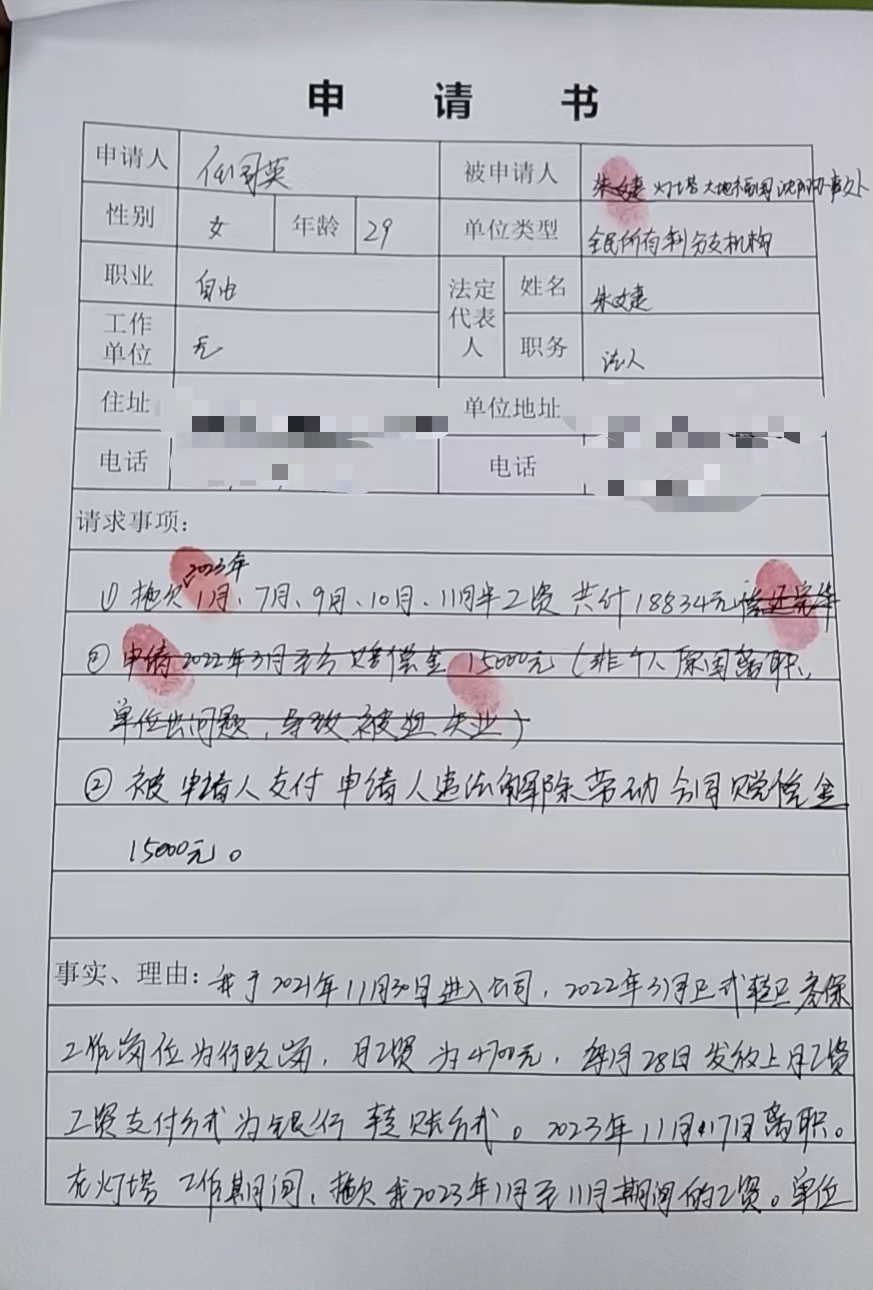 申请书
申请人 任同英 被申请人 朱女婕 灯塔大地福园沈阳办事处
性别 女 年龄 29 单位类型 全民所有制分支机构
职业 自由 法定代表人 姓名 朱女婕
工作单位 无 职务 法人
住址 单位地址
电话 电话
请求事项：
2023年
① 拖欠1月、7月、9月、10月、11月半工资 共计18834元
② 申请2022年3月至今赔偿金15000元（非个人原因离职，
单位出问题，导致被迫失业）
② 被申请人支付申请人违法解除劳动合同赔偿金
15000元。
事实、理由：我于2021年11月30日进入公司，2022年3月正式转正 参保
工作岗位为行政岗，月工资为4700元，每月28日发放上月工资
工资支付方式为银行转账方式。2023年11月17日离职。
在灯塔工作期间，拖欠我2023年1月至11月期间的工资。单位